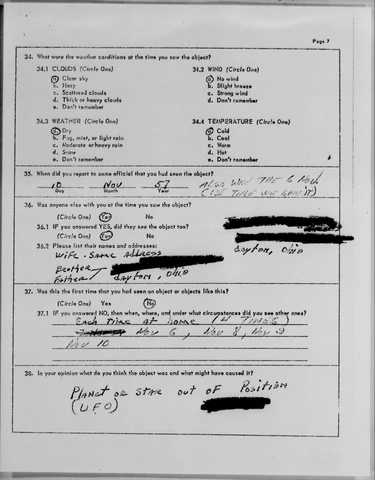 Page 7
34. What were the weather conditions at the time you saw the object?
34.1 CLOUDS (Circle One) 34.2 WIND (Circle One)
a. Clear sky a. No wind
b. Hazy b. Slight breeze
c. Scattered clouds c. Strong wind
d. Thick or heavy clouds d. Don't remember
e. Don't remember
34.3 WEATHER (Circle One) 34.4 TEMPERATURE (Circle One)
a. Dry a. Cold
b. Fog, mist, or light rain b. Cool
c. Moderate or heavy rain c. Warm
d. Snow d. Hot
e. Don't remember e. Don't remember
35. When did you report to some official that you had seen the object?
10 Nov 57 ALSO WED THE 6 NOV.
Day Month Year (1ST TIME WE SAW IT)
36. Was anyone else with you at the time you saw the object?
(Circle One) Yes No
36.1 IF you answered YES, did they see the object too?
(Circle One) Yes No DAYTON, OHIO
36.2 Please list their names and addresses:
WIFE - SAME ADDRESS
Brother
Father DAYTON, OHIO
37. Was this the first time that you had seen an object or objects like this?
(Circle One) Yes No
37.1 IF you answered NO, then when, where, and under what circumstances did you see other ones?
Each Time AT home (4 TIMES)
Nov 6, Nov 8, Nov 9
Nov 10
38. In your opinion what do you think the object was and what might have caused it?
PLANET OR STAR OUT OF POSITION
(UFO)